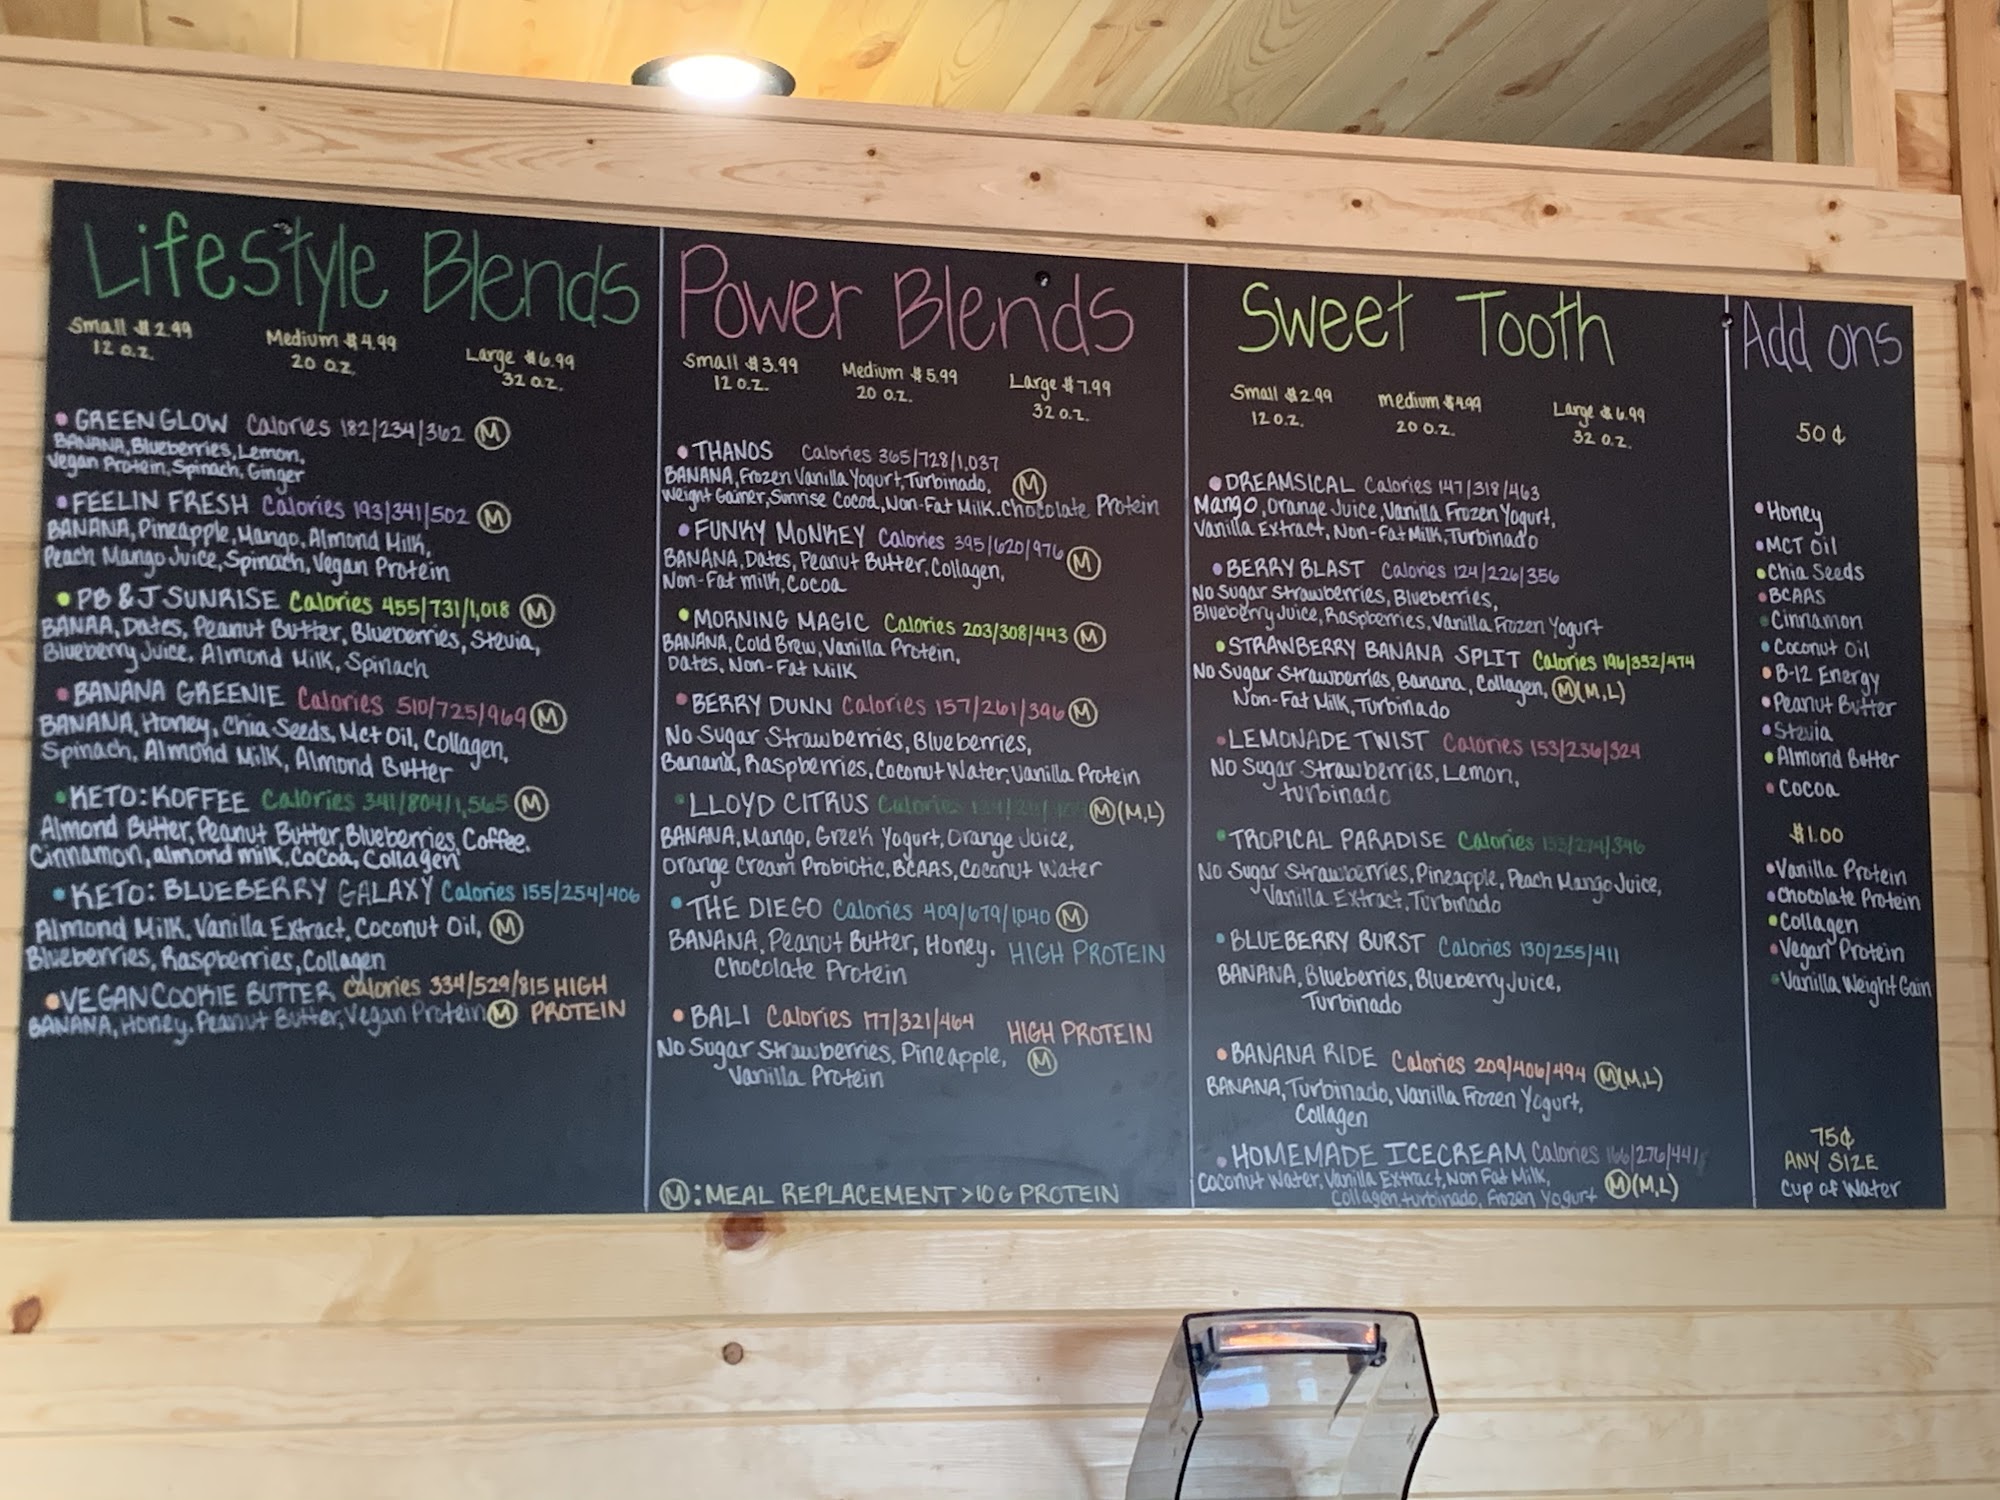 Lifestyle Blends
Small $2.99 Medium $4.99 Large $6.99
12 O.Z. 20 O.Z. 32 O.Z.
GREEN GLOW Calories 182/234/362 M
BANANA, Blueberries, Lemon,
Vegan Protein, Spinach, Ginger
FEELIN FRESH Calories 193/341/502 M
BANANA, Pineapple, Mango, Almond Milk,
Peach Mango Juice, Spinach, Vegan Protein
PB & J SUNRISE Calories 455/731/1,018 M
BANAA, Dates, Peanut Butter, Blueberries, Stevia,
Blueberry Juice, Almond Milk, Spinach
BANANA GREENIE Calories 510/725/969 M
BANANA, Honey, Chia Seeds, Mct Oil, Collagen,
Spinach, Almond Milk, Almond Butter
KETO: KOFFEE Calories 341/804/1,565 M
Almond Butter, Peanut Butter, Blueberries, Coffee,
Cinnamon, almond milk, Cocoa, Collagen
KETO: BLUEBERRY GALAXY Calories 155/254/406
Almond Milk, Vanilla Extract, Coconut Oil, M
Blueberries, Raspberries, Collagen
VEGAN COOKIE BUTTER Calories 334/529/815 HIGH
BANANA, Honey, Peanut Butter, Vegan Protein M PROTEIN
Power Blends
Small $3.99 Medium $5.99 Large $7.99
12 O.Z. 20 O.Z. 32 O.Z.
THANOS Calories 365/728/1,037
BANANA, Frozen Vanilla Yogurt, Turbinado, M
Weight Gainer, Sunrise Cocoa, Non-Fat Milk, Chocolate Protein
FUNKY MONKEY Calories 395/620/976 M
BANANA, Dates, Peanut Butter, Collagen,
Non-Fat milk, Cocoa
MORNING MAGIC Calories 203/308/443 M
BANANA, Cold Brew, Vanilla Protein,
Dates, Non-Fat Milk
BERRY DUNN Calories 157/261/396 M
No Sugar Strawberries, Blueberries,
Banana, Raspberries, Coconut Water, Vanilla Protein
LLOYD CITRUS Calories M (M,L)
BANANA, Mango, Greek Yogurt, Orange Juice,
Orange Cream Probiotic, BCAAS, Coconut Water
THE DIEGO Calories 409/679/1040 M
BANANA, Peanut Butter, Honey, HIGH PROTEIN
Chocolate Protein
BALI Calories 177/321/464 HIGH PROTEIN
No Sugar Strawberries, Pineapple, M
Vanilla Protein
M: MEAL REPLACEMENT >10 G PROTEIN
Sweet Tooth
Small $2.99 medium $4.99 Large $6.99
12 O.Z. 20 O.Z. 32 O.Z.
DREAMSICAL Calories 147/318/463
Mango, Orange Juice, Vanilla Frozen Yogurt,
Vanilla Extract, Non-Fat Milk, Turbinado
BERRY BLAST Calories 124/226/356
No Sugar Strawberries, Blueberries,
Blueberry Juice, Raspberries, Vanilla Frozen Yogurt
STRAWBERRY BANANA SPLIT Calories 196/352/474
No Sugar Strawberries, Banana, Collagen, M (M,L)
Non-Fat Milk, Turbinado
LEMONADE TWIST Calories 153/236/324
No Sugar Strawberries, Lemon,
turbinado
TROPICAL PARADISE Calories 153/274/346
No Sugar Strawberries, Pineapple, Peach Mango Juice,
Vanilla Extract, Turbinado
BLUEBERRY BURST Calories 130/255/411
BANANA, Blueberries, Blueberry Juice,
Turbinado
BANANA RIDE Calories 209/406/494 M (M,L)
BANANA, Turbinado, Vanilla Frozen Yogurt,
Collagen
HOMEMADE ICECREAM Calories 166/276/441
Coconut Water, Vanilla Extract, Non Fat Milk, M (M,L)
Collagen, turbinado, Frozen Yogurt
Add ons
50¢
Honey
MCT Oil
Chia Seeds
BCAAS
Cinnamon
Coconut Oil
B-12 Energy
Peanut Butter
Stevia
Almond Butter
Cocoa
$1.00
Vanilla Protein
Chocolate Protein
Collagen
Vegan Protein
Vanilla Weight Gain
75¢
ANY SIZE
Cup of Water